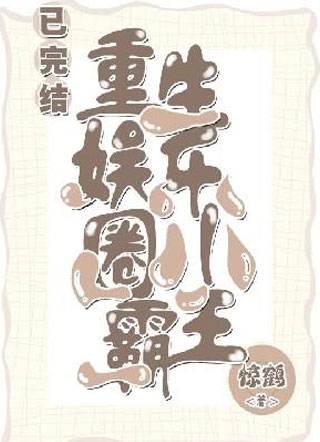 已完结
重生
娱乐
圈小
霸王
惊鹤
<著>